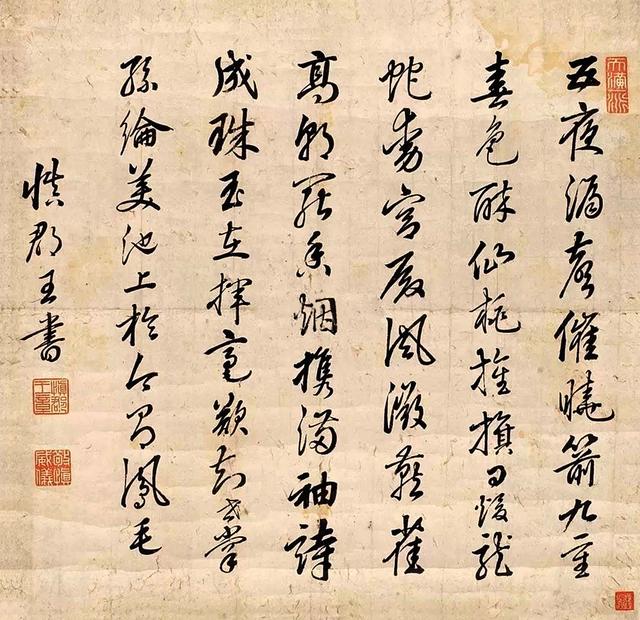 五夜漏聲催曉箭九重
春色醉仙桃旌旗日煖龍
蛇動宮殿風微燕雀
高朝罷香烟攜滿袖詩
成珠玉在揮毫欲知世掌
絲綸美池上於今有鳳毛
慎郡王書
慎郡王章
敬慎威儀